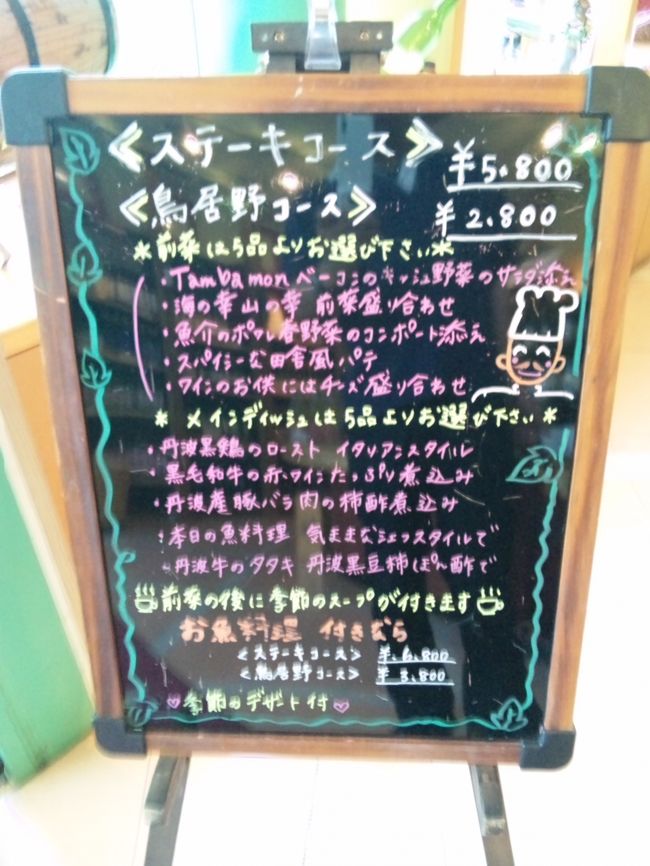 ≪ステーキコース≫ ¥5.800
≪鳥居野コース≫ ¥2.800
*前菜は5品よりお選び下さい*
・Tambamonベーコンのキッシュ野菜のサラダ添え
・海の幸山の幸 前菜盛り合わせ
・魚介のポワレ春野菜のコンポート添え
・スパイシーな田舎風パテ
・ワインのお供にはチーズ盛り合わせ
* メインディッシュは5品よりお選び下さい *
・丹波黒鶏のロースト イタリアンスタイル
・黒毛和牛の赤ワインたっぷり煮込み
・丹波産豚バラ肉の柿酢煮込み
・本日の魚料理 気ままなシェフスタイルで
・丹波牛のタタキ 丹波黒豆柿ぽん酢で
前菜の後に季節のスープが付きます
お魚料理 付きなら
<ステーキコース> ¥.6.800
<鳥居野コース> ¥3.800
♡季節のデザート付♡